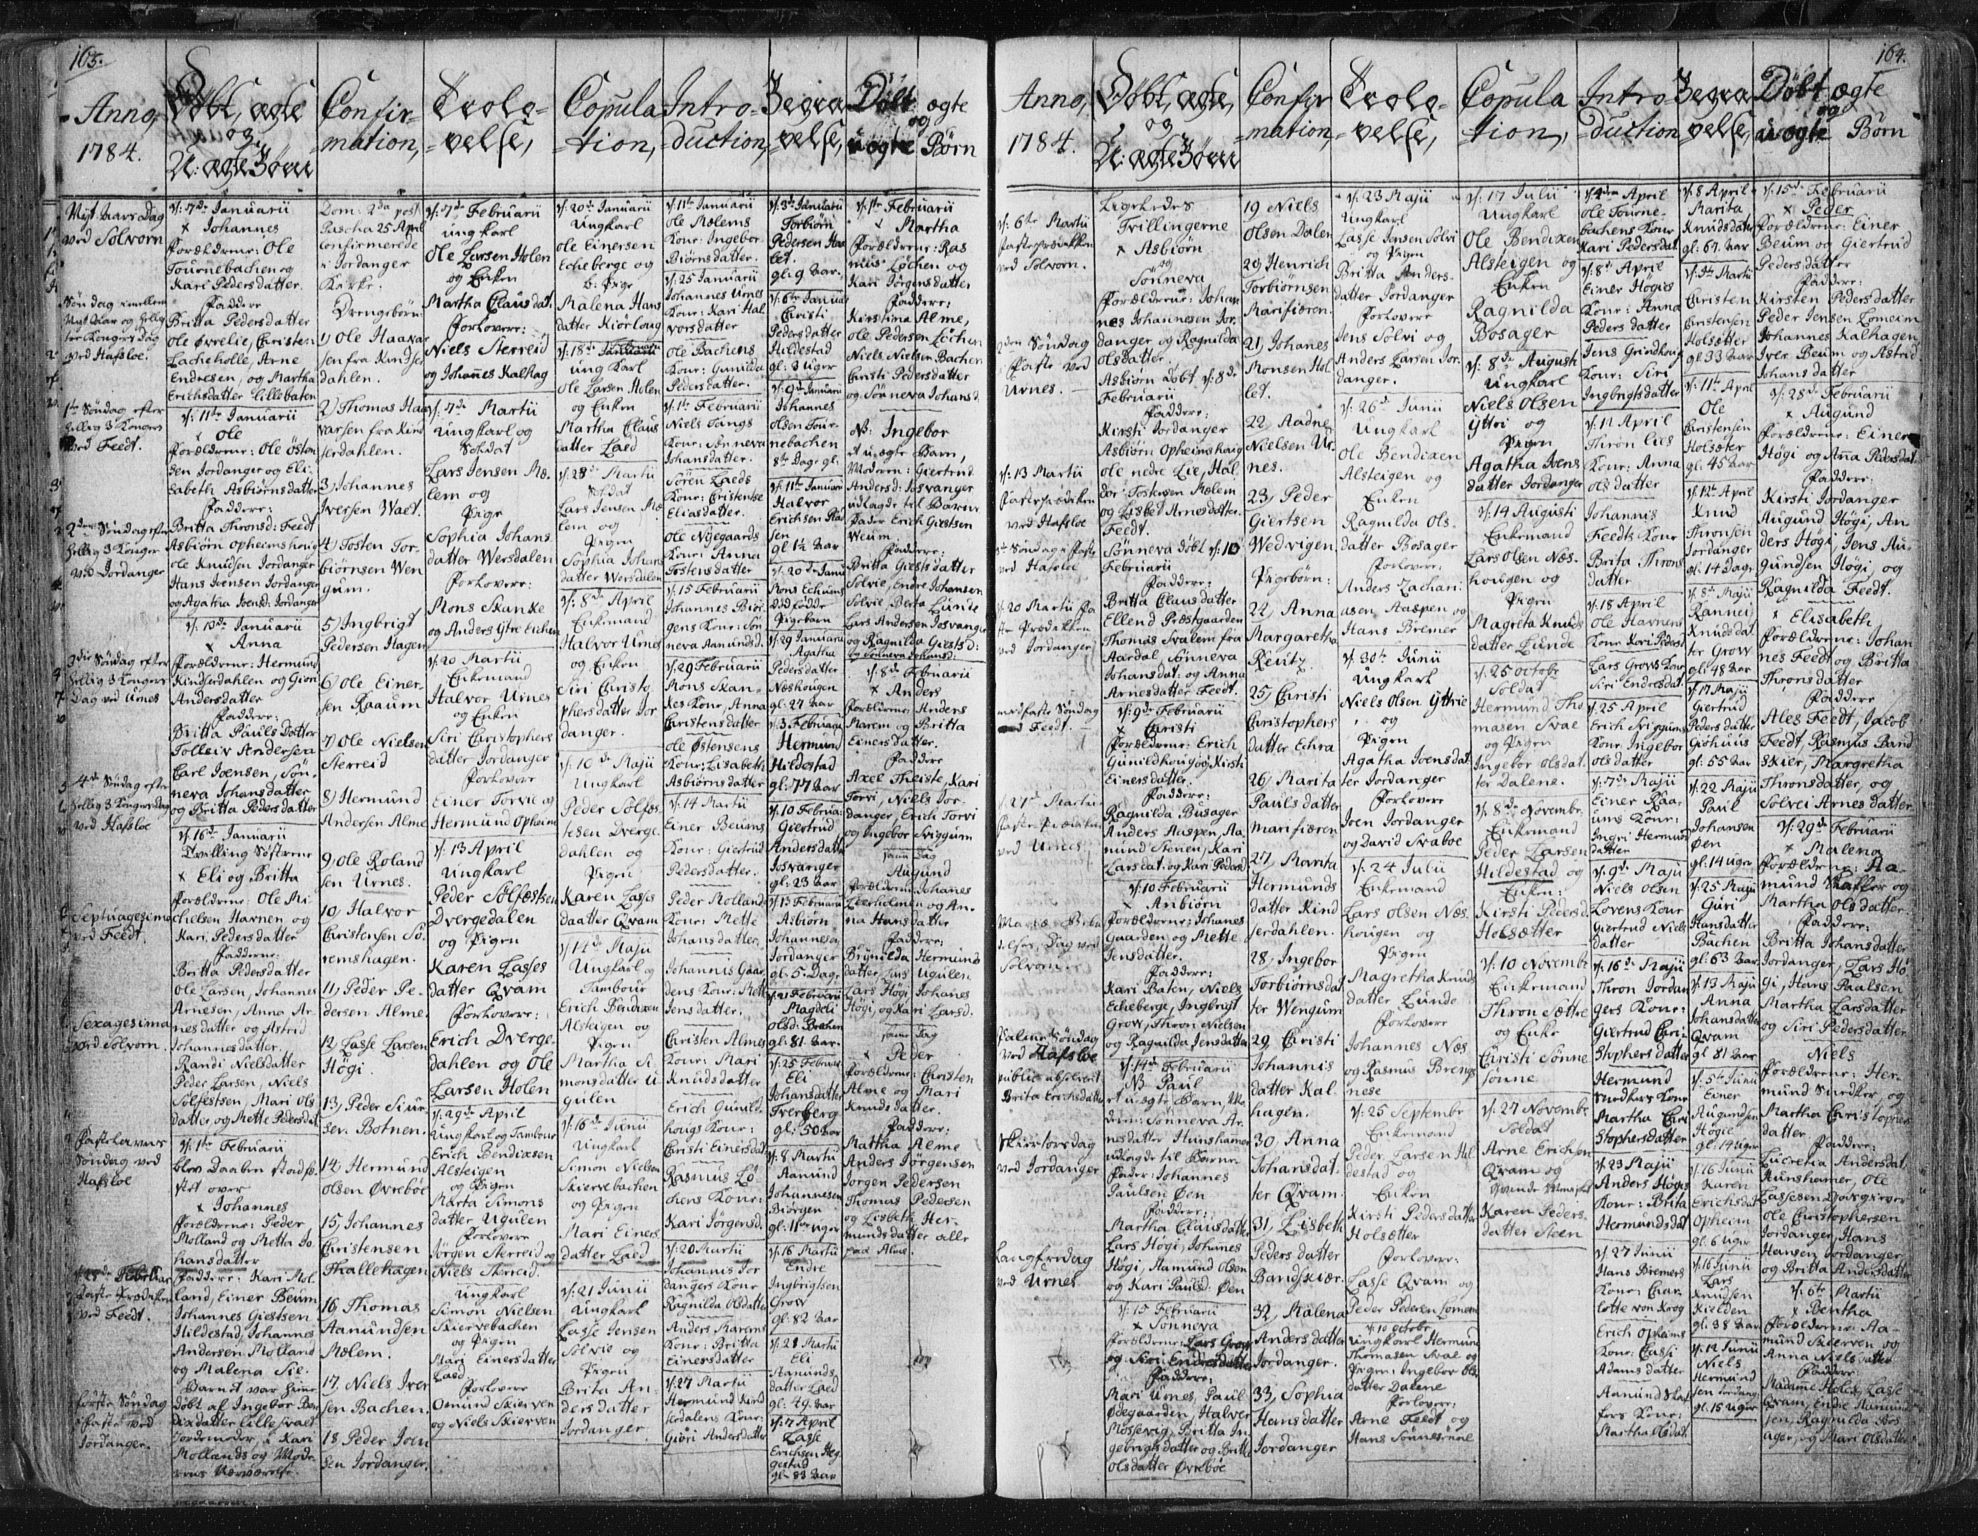 163.
Anno,
1784.
Døbt, ægte
og
U: ægte Børn
Confir-
mation,
Trolo-
velse,
Copula
tion,
Intro-
duction,
Begra
velse,
Døbt ægte
og
uægte Børn
Nyt Aars Dag
ved Solvorn
Søndag imellem
Nyt Aar og hellig
tre Kongers Dag
ved Hafsloe.
1te Søndag efter
hellig 3 Konger
ved Feedt.
2den Søndag efter
Hellig 3 Konger
ved Jordanger
3die Søndag efter
Hellig 3 Kongers
Dag ved Urnes
4de Søndag efter
Hellig 3 Kongers Dag
ved Hafsloe
Septuagesima
ved Feedt.
Sexagesima
ved Solvorn.
Fastelavns
Søndag ved
Hafsloe
ved Feedt.
første Søndag
i Faste ved
Jordanger.
d: 7de Januarii
x Johannes
Forældrene: Ole
Tournebachen og
Kari Pedersdatter.
Faddere
Britta Pedersdatter
Ole Øvrelie, Christen
Lacheholle, Arne
Endresen, og Martha
Erichsdatter Lillebaten
d: 11te Januarii
x Ole
Forældrene: Ole Østen
sen Jordanger og Eli-
sabeth Asbiørnsdatter
Faddere:
Britta Thronsd: Feedt
Asbiørn Opheimshoug
Ole Knudsen Jordanger
Hans Ivensen Jordanger
og Agatha Joensd: Jordanger
d: 13de Januarii
x Anna
Forældrene: Hermund
Kindserdahlen og Giøri
Andersdatter
Faddere:
Britta Pauls Dotter
Tolleiv Andersen
Carl Joensen, Søn-
neva Johansdatter
og Britta Pedersdatter
d: 16de Januarii
Tvilling Søstrene
x Eli og Britta
Forældrene: Ole Mi-
chelsen Havnen og
Kari Pedersdatter
Faddere:
Britta Pedersdatter
Ole Larsen, Johannes
Arnesen, Anna Ar-
nesdatter og Astrid
Johannesdatter.
Randi Nielsdatter
Peder Larsen, Niels
Sølfestsen, Mari Ols
datter og Mette Pedersdat
d: 1te Februarii
blev Daaben stadfæ-
stet over
x Johannes
Forældrene: Peder
Molland og Metta Jo
hansdatter
Faddere: Kari Mol-
land, Einer Beum
Johannes Giertsen
Hildestad, Johannes
Andersen Molland
og Malena Sie
Barnet var hiem
døbt af Ingebor Ben
dixdatter Lille Svalt
Jordemoder, i Kari
Mollands og Mode-
rens Nærværelse.
Dom: 2da post
Pascha 25 April
Confirmerede
i Jordanger
Kirke:
Drengebørn:
1) Ole Haavar
sen fra Kindser
dahlen.
2) Thomas Haa
varsen fra Kind
serdahlen.
3) Johannes
Iversen Waet.
4) Tosten Tor-
biørnsen Wen
gum.
5) Ingbrigt
Pedersen Hagen
6) Ole Einer-
sen Raaum
7) Ole Nielsen
Sterreid
8) Hermund
Andersen Alme
9) Ole Roland
sen Urnes.
10) Halvor
Christensen Sø-
remshagen.
11) Peder Pe-
dersen Alme.
12) Lasse Larsen
Högi.
13) Peder Siur-
sen Botnen.
14) Hermund
Olsen Øvreboe
15) Johannes
Christensen
Thallehagen
16 Thomas
Aamundsen
Mælem.
17) Niels Iver
sen Bachen.
18 Peder Joen
sen Jordanger.
d: 7de Februarii
ung karl
Ole Larsen Holen
og Enken
Martha Clausdat.
Forlovere:
Niels Sterreid
og Johannes Kalhag
d: 7de Martii
Ungkarl og
Soldat
Lars Jensen Mæ-
lem og
Pige
Sophia Johans
datter Wersdalen
Forlovere:
Mons Skanke
og Anders Ytre Eichen
d: 20 Martii
Enkemand
Halvor Urnes
og Enken
Siri Christophers
datter Jordanger
Forlovere
Einer Torvie og
Hermund Opheim
d: 13 April
Ungkarl
Peder Sølfæstsen
Dvergedalen
og Pigen
Karen Lasses
datter Qvam
Forlovere:
Erich Dverge-
dahlen og Ole
Larsen Holen
d: 29de April
Ungkarl og Tambour
Erich Bendixsen
Alsteigen
og Pigen
Marta Simons
datter Ugulen
Forlovere
Jørgen Sterreid og
Niels Sterreid.
Ungkarl
Simon Nielsen
Skiervebachen
og Pigen
Mari Einersdatter
Laed
Forlovere
Omund Skierven
og Niels Skierven
d: 20de Januarii
Ungkarl
Ole Einersen
Echeberge og
Pige
Malena Hans
datter Kiørloug
d: 18de Januarii
ung Karl
Ole Larsen Holen
og Enken
Martha Claus
datter Laed
d: 28de Martii
Soldat
Lars Jensen Mæ
lem og
Pigen
Sophia Johans
datter Wersdalen
d: 8de April
Enkemand
Halvor Urnes
og Enken
Siri Christo
phersdatter Jor
danger.
d: 10de Maju
Ungkarl
Peder Sølfæs
tesen Dverge-
dahlen og
Pigen
Karen Lasses
daatter Qvam
d: 14de Maju
Ungkarl og
Tambour
Erich Bendixen
Alsteigen og
Pigen
Martha Si-
monsdatter U
gulen
d: 16de Junii
Ungkarl
Simon Nielsen
Skiervebachen
og Pigen
Mari Einers
datter Laed
d: 21 Junii
Ungkarl
Lasse Jensen
Sølvie og
Pigen
Brita An-
dersdatter
Jordanger.
d: 11te Januarii
Ole Mælems
Kone: Ingebor
Biørnsdatter.
d: 25 Januarii
Johannes Urnes
Kone: Kari Hal
vorsdatter
Ole Bachens
Kone: Gunilda
Pedersdatter.
d: 1te Februarii
Niels Tangs
Kone: Anneva
Johansdatter.
Søren Laeds
Kone: Christense
Eliasdatter.
Ole Nygaards
Kone: Anna
Tostensdatter
d: 15 Februarii
Johannes Biør
gens Kone: Søn
neva Aamundsd.
d: 29 Februarii
Mons Skan-
kes Kone, Anna
Christensdatter
Ole Østensens
Kone: Lisabeth
Asbiørnsdatter
d: 14 Martii
Einer Beums
Kone: Giertrud
Pedersdatter.
Peder Mollands
Kone: Mette
Johansdatter.
Johannis Gaar
dens Kone: Mette
Jensdatter.
Christen Almes
Kone: Mari
Knudsdatter
Erich Gunild-
hougs Kone:
Christi Einersdat
Rasmus Lø-
chens Kone:
Kari Jörgensd.
d: 20 Martii
Johannis Jor
dangers Kone
Ragnilda Olsdatter
Anders Marems
Kone: Britta
Einersdatter
d: 27 Martii
Hermund Kind
serdalens Kone:
Giøri Andersdatter
d: 3de Januarii
Torbiörn
Pedersen Hæs
let.
gl: 9 Aar.
d: 6te Januar
Christi
Pedersdatter
Hildestad
gl: 3 Uger
d: 9de Januarii
Johannes
Olsen Tour-
nebachen
8te Dage gl:
d: 11te Januarii
Halvor
Erichsen
gl: 1½ Aar
d: 20de Janu
Mons Echums
Dødfødde
Pigebarn
d: 29 Januarii
Agatha
Pedersdatter
Næshougen
gl: 27 Aar
d: 3 Februarii
Hermund
Hildestad
gl: 77 Aar
d: 10 Februa:
Giertrud
Andersdatter
Josvanger
gl: 23 Aar
d: 13 Februarii
Asbiörn
Johannesen
Jordanger
gl: 5 Dage
d: 21 Februarii
Magdeli
Olsd: Bachen
gl: 81 Aar.
d: 25 Februarii
Eli
Johansdatter
Tverberg
gl: 50 Aar
d: 9 Martii
Aamund
Johannesen
Biörgen
gl: 11te uger
d: 16 Martii
Endre
Ingbrigtsen
Grow
gl: 82 Aar
d: 28 Martii
Eli
Aamunds
datter Laed
gl: 49 Aar.
d: 17 April
Lasse
Erichsen Heg
gestad
gl: 83 Aar
d: 1te Februarii
x Martha
Forældrene: Ras
mus Løchen og
Kari Jörgensdatter
Faddere:
Kirstina Alme,
Ole Pedersen Løchen
Niels Nielsen Bachen
Christi Pedersdatter
og Sønneva Johansd.
NB: Ingebor
et uægte Barn,
Moderen: Giertrud
Andersd: Josvanger
udlagde til Barne
Fader Erich Giertsen
Weum.
Faddere:
Britta Giertsdatter
Solvie, Endre Johansen
Solvie, Berta Lunde
Lars Andersen Josvanger
og Ragnilda Giertsd:
og Sönneva Johansd:
d: 8de Februarii
x Anders
Forældrene: Anders
Marem og Britta
Einersdatter.
Faddere
Axel Theiste, Kari
Torvi, Niels Jor-
danger, Erich Torvi
og Ingebor Sviggum
samme Dag
Augund
Forældrene: Johanes
Leerholmen og An-
na Hansdatter
Faddere:
Brynilda Hermunds
datter, Lars Ugulen
Lars Högi, Johanes
Högi, og Kari Larsd.
samme Dag
x Peder
Forældrene: Christen
Alme og Mari
Knudsdatter.
Faddere:
Martha Alme
Anders Jörgensen
Jorgen Pedersen
Thomas Pedersen
og Lisbeth Her-
mundsdatter alle
paa Alme.
164.
Anno,
1784.
Døbt, ægte,
og
U: ægte Børn
Confir
mation,
Trolo-
velse,
Copula
tion,
Intro-
duction
Begra
velse,
Døbt ægte
og
uægte Børn
d: 6te Martii
Fasteprædikken
ved Solvorn.
2den Søndag
i Faste ved
Urnes.
d: 13 Martii
Fasteprædiken
ved Hafsloe
3de Søndag i Faste
ved Hafsloe
d: 20 Martii Fa
ste Prædikken
ved Jordanger
midfaste Søndag
ved Feedt.
d: 27de Martii
Faste Prædiken
ved Urnes
Mariæ Bebu
delses Dag ved
Solvorn
Palme Søndag
ved Hafsloe
public absolveret
Brita Erichsdatter
Skiertorsdag
ved Jordanger
Langfredag
ved Urnes
Ligeledes
Trillingerne
x Asbiörn
og
Sönneva
Forældrene: Johan
nes Johannesen Jor
danger og Ragnilda
Olsdatter.
Asbiörn döbt d: 8de
Februarii
Faddere:
Kirsti Jordanger
Asbiörn Opheimshoug
Ole nedre Lie, Hal
dor Tostensen Mælem
og Lisbet Arnesdatter
Feedt.
Sönneva döbt d: 10
Februarii
Faddere:
Britta Clausdatter
Ellend Præstgaarden
Thomas Svalem fra
Aardal, Sönneva
Johansdat: og Anna
Arnesdatter Feedt.
d: 9de Februarii
x Christi
Forældrene: Erich
Gunildhoug og Kirsti
Einersdatter.
Faddere:
Ragnilda Busager
Anders Aaspen, Aa
mund Stenen, Kari
Larsdat: og Kari Pedersd
d: 10 Februarii
x Anbiörn
Forældrene: Johanes
Gaarden og Mette
Jensdatter.
Faddere:
Kari Baten, Niels
Echeberge, Ingbrigt
Grow, Thron Nielsen
og Ragnilda Jensdatter
d: 14de Februarii
NB Paul
et u:ægte Barn, Mo
deren: Sönneva Ar-
nesdatter Hunshamer
udlagde til Barne-
Fader: Johannes
Paulsen Øen
Faddere:
Martha Clausdatter
Lars Högi, Johanes
Högi, Aamund Olsen
og Kari Paulsd: Øen
d: 15 Februarii
x Sönneva
Forældrene: Lars Grow
og Siri Endresdatter
Faddere:
Mari Urnes, Paul
Ødegaarden, Halvor
Mosservig, Britta In
gebrigtsdatter og Britta
Olsdatter Øvreboe
19 Niels
Olsen Dalen
20 Henrich
Torbiörnsen
Marifiæren.
21) Johanes
Monsen Hol
let.
22, Aadne
Nielsen Ur-
nes.
23) Peder
Giertsen
Wedvigen.
Pigebørn:
22, Anna
Margaretha
Reutz
25) Christi
Christophers
datter Echra
26) Marita
Paulsdatter
Marifiæren
27, Marita
Hermunds
datter Kind
serdahlen.
28, Ingebor
Torbiörnsdat
ter Wengum
29. Christi
Johannis
datter Kal-
hagen.
30, Anna
Johansdat.
ter Qvam.
31, Lisbeth
Pedersdatter
Bandskiær.
32, Malena
Andersdatter
Jordanger.
33, Sophia
Hansdatter
Jordanger
d: 23 Majii
Ungkarl
Lasse Jensen Solvi
og Pigen
Britta Anders-
datter Jordanger
Forlovere
Jens Solvi og
Anders Larsen Jor
danger.
d: 26de Junii
Ungkarl
Ole Bendixen
Alsteigen
Enken
Ragnilda Ols-
datter Bosager
Forlovere:
Anders Zachari
asen Aaspen og
Hans Bremer
d: 30te Junii
Ungkarl
Niels Olsen Yttrie
og
Pigen
Agatha Joensdat
ter Jordanger
Forlovere
Iren Jordanger
og David Svaboe
d: 24 Julii
Enkemand
Lars Olsen Næs
hougen og
Pigen
Magretha Knuds
datter Lunde
Forlovere
Johannes Næs
og Rasmus Breng
nese
d: 25 Septembr
Enkemand
Peder Larsen Hil
destad og
Enken
Kirsti Pedersdatter
Holsætter
Forlovere:
Lasse Qvam og
Peder Pedersen Lomen
d: 10 octobr
Ungkarl Hermund
Thomasen Svae og
Pigen: Ingebor Ols
datter Dalene
Forlovere:
Arne Feedt og
Hans Sönnesönne
d: 17 Julii
Ungkarl
Ole Bendixen
Alsteigen og
Enken
Ragnilda
Bosager
d: 8de Augusti
Ungkarl
Niels Olsen
Yttri og
Pigen
Agatha Joens
datter Jordanger
d: 14 Augusti
Enkemand
Lars Olsen Næs-
hougen og
Pigen
Magreta Knuds
datter Lunde
d: 25 octobr
Soldat
Hermund Tho
masen Svae
og Pigen
Ingebor Olsdat
ter Dalene.
d: 8de Novembr
Enkemand
Peder Larsen
Hildestad og
Enken:
Kirsti Pedersd
Holsætter
d: 10 Novembr
Enkemand
Thron Sættre
og Enke
Christi Sönne
sönne
d: 27 Novembr
Soldat
Arne Erichsen
Qvam og
Karen Peders-
datter Steen
d: 4den April
Ole Tourne-
bachens Kone
Kari Pedersdat.
d: 8de April
Einer Högies
Kone: Anna
Pedersdatter
Jens Grindhoug
Kone: Siri
Ingbrigtsdatter
d: 11 April
Thron Lies
Kone: Anna
Olsdatter
Johannis
Feedts Kone
Brita Throns
datter
d: 18 April
Ole Havnens
Kone Kari Pedersd
Lars Grows Kone
Siri Endresdat
d: 25 April
Erich Sviggums
Kone: Ingebor
Olsdatter
d: 7de Maju
Einer Raa-
ums Kone:
Ingeri Hermunds
datter
d: 9de Maju
Niels Olsen
Lovens Kone
Giertrud Niels
datter
d: 16de Maju
Thron Jordan
gers Kone:
Giertrud Chri-
stophersdatter
Hermund
Snedkers Kone
Martha Chri
stophersdatter
d: 23 Maju
Anders Höges
Kone: Brita
Hermundsdat
d: 27 Junii
Hans Bremers
Kone: Char-
lotte von Krog
Erich Opheims
Kone: Lassi
Adamsdatter
Aamund Skaf
fers Kone:
Martha Olsdat
d: 8 April
Marita
Knudsdatter
gl: 67. Aar
d: 9de Martii
Christen
Christensen
Holsætter
gl: 33 Aar
d: 11te April
Ole
Christensen
Holsæter
gl: 45 Aar
d: 12te April
Knud
Thronsen
Jordanger
gl: 14 Dage
d: 8de Maju
Rannei
Knudsdat
ter Grow
gl: 48 Aar
d: 17 Maju
Giertrud
Pedersdatter
gl: 55 Aar
d: 22 Maju
Paul
Johansen
Øen
gl: 14 Uger
d: 25 Maju
Guri
Hansdatter
Bachen
gl: 63 Aar
d: 13 Maju
Anna
Johansdatter
Qvam
gl: 81 Aar
d: 5te Junii
Einer
Augundsen
Högie
gl: 14 Uger
d: 16 Junii
Karen
Erichsdat
Opheim
gl: 6 Uger
d: 16 Junii
Lars
Knudsen
Kielden
gl: 38 Aar
d: 14 Junii
Niels
Hermund
sen Jordang
gl: 15 Uger
d: 15de Februarii
x Peder
Forældrene: Einer
Beum og Giertrud
Pedersdatter
Faddere:
Kirsten Pedersdatter
Peder Jensen Lomeim
Johannes Kalhagen
Iver Beum og Astrid
Johansdatter
d: 28de Februarii
x Augund
Forældrene: Einer
Högi og Anna Pedersdat
Faddere:
Kirsti Jordanger
Augund Högi, An
ders Högi Jens Au-
gundsen Högi, og
Ragnilda Feedt.
x Elisabeth
Forældrene: Johan
nes Feedt og Britta
Thronsdatter
Faddere
Ales Feedt, Jacob
Feedt, Rasmus Band
skier, Margretha
Thronsdatter, og
Sølvei Arnesdatter
d: 29de Februarii
x Malena
Forældrene: Aa-
mund Skaffer og
Martha Olsdatter
Faddere:
Britta Johansdatter
Jordanger, Lars Hö
gi, Hans Paulsen
Martha Larsdatter
og Siri Pedersdatter
Niels
Forældrene: Her-
mund Snedker, og
Martha Christophers
datter
Faddere:
Lucretia Andersdat
Hunshamer, Ole
Lassesen Qvigrever
Ole Christophersen
Jordanger, Hans
Hansen Jordanger
og Britta Andersdatter
d: 6te Martii
x Bentha
Forældrene: Aa-
mund Skierven og
Anna Nielsdatter
Faddere
Madame Holck, Lasse
Qvam, Endre Aamund
sen, Ragnilda Bos
ager, og Mari Olsdatter